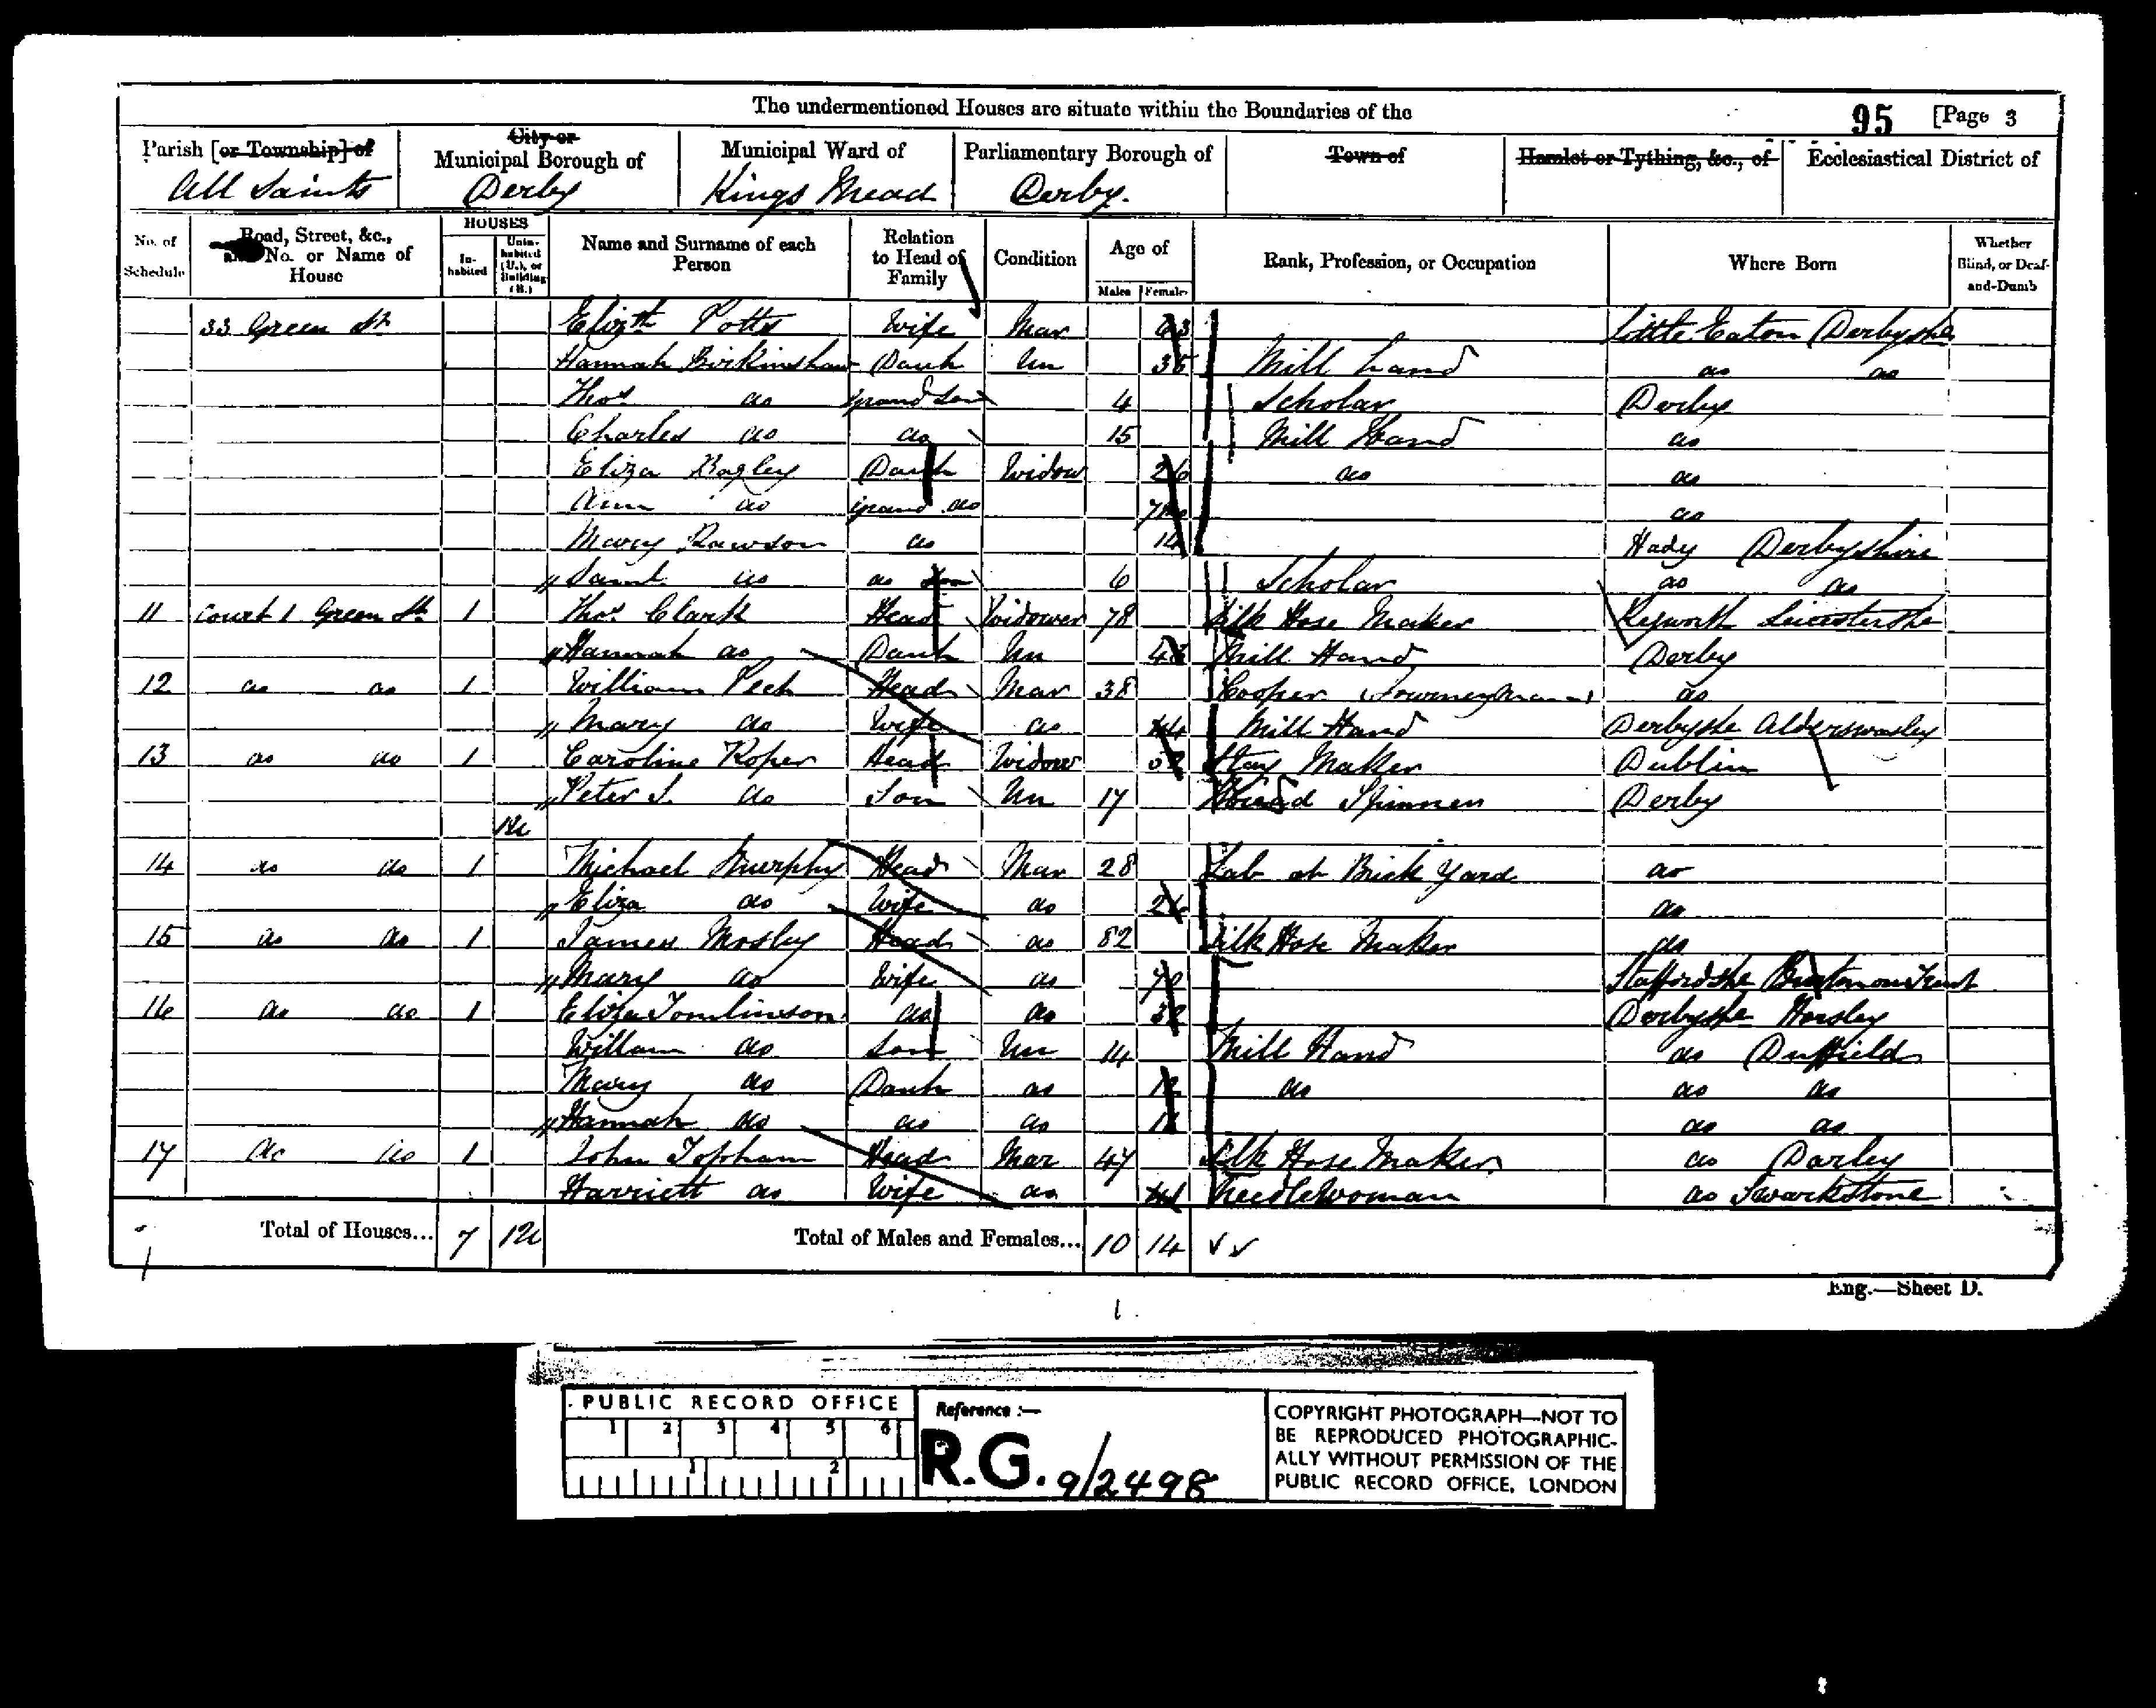 The undermentioned Houses are situate within the Boundaries of the
95 [Page 3
Parish [or Township] of
All Saints
City or
Municipal Borough of
Derby
Municipal Ward of
Kings Mead
Parliamentary Borough of
Derby.
Town of
Hamlet or Tything, &c., of
Ecclesiastical District of
No. of Schedule
Road, Street, &c., and No. or Name of House
HOUSES
In-habited
Unin-habited (U.), or Building (B.)
Name and Surname of each Person
Relation to Head of Family
Condition
Age of
Males Females
Rank, Profession, or Occupation
Where Born
Whether Blind, or Deaf-and-Dumb
33 Green St Elizth Potts Wife Mar 63 Little Eaton Derbyshe
Hannah Birkinshaw Daub Un 35 Mill Hand do do
Thos do grand Son 4 Scholar Derby
Charles do do 15 Mill Hand do
Eliza Bagley Daub Widow 26 do do
Ann do grand do do
Mary Rawson do 14 Hady Derbyshire
Saml do do Son 6 Scholar do do
11 Court 1 Green St 1 Thos Clark Head Widower 78 Silk Hose Maker Leicestershe
Hannah do Daub Un Mill Hand Derby
12 do do 1 William Peck Head Mar 38 Cooper (Journeyman) do
Mary do Wife do 44 Mill Hand Derbyshe Alderswasley
13 do do 1 Caroline Roper Head Widow Stay Maker Dublin
Peter S. do Son Un 17 Spinner Derby
1U
14 do do 1 Michael Murphy Head Mar 28 Lab at Brick Yard do
Eliza do Wife do do
15 do do 1 James Mosley Head do 82 Silk Hose Maker do
Mary do Wife do 70 Staffordshe Burton on Trent
16 do do 1 Eliza Tomlinson do do Derbyshe Horsley
Willam do Son Un 14 Mill Hand do Duffield
Mary do Daub do 12 do do do
Hannah do do do do do
17 do do 1 John Topham Head Mar 47 Silk Hose Maker do Darley
Harriett do Wife do 41 Needlewoman do Swarkstone
Total of Houses... 7 1U Total of Males and Females... 10 14
Eng.—Sheet D.
PUBLIC RECORD OFFICE
1 2 3 4 5 6
1 2
Reference :—
R.G. 9/2498
COPYRIGHT PHOTOGRAPH—NOT TO
BE REPRODUCED PHOTOGRAPHIC-
ALLY WITHOUT PERMISSION OF THE
PUBLIC RECORD OFFICE, LONDON